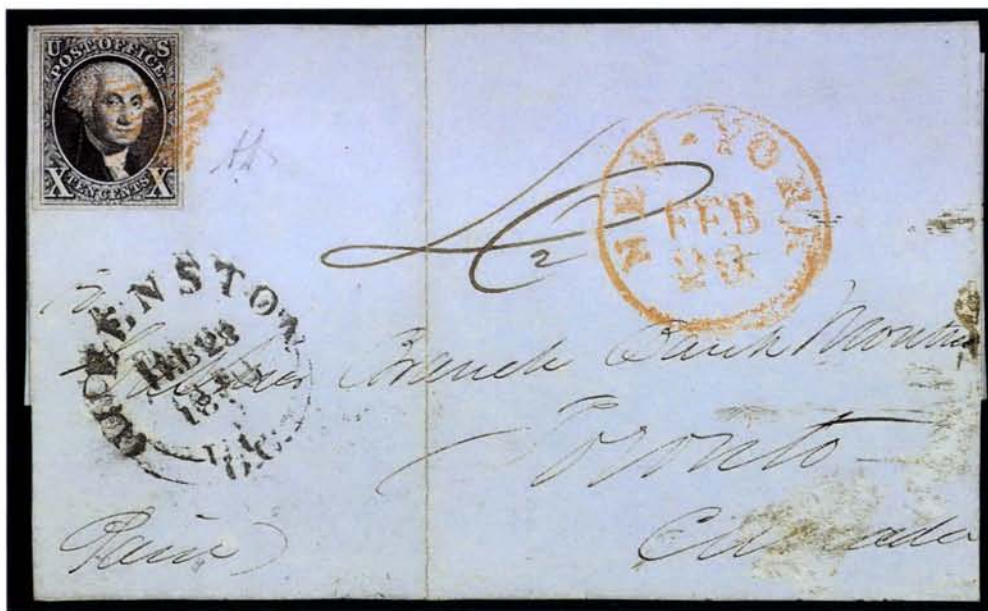 U S
POST OFFICE
X TEN CENTS X
NEW-YORK
FEB
QUEENSTON
FEB 28
U.C.
Branch Bank Montre
Toronto
Canada
Paid